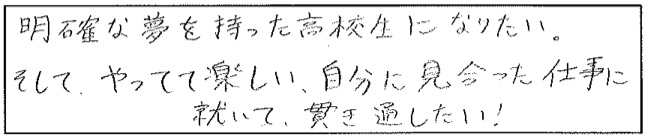 明確な夢を持った高校生になりたい。
そして、やってて楽しい、自分に見合った仕事に
就いて、貫き通したい!